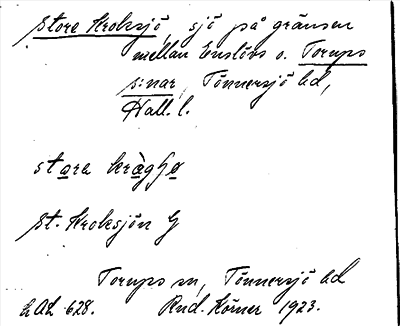 Store Kroksjö, sjö på gränsen
mellan Enslövs o. Torups
s:nar, Tönnersjö hd,
Hall. l.
stora kràgʃo
St. Kroksjön G
Torups sn, Tönnersjö hd
628. Rud. Körner 1923.